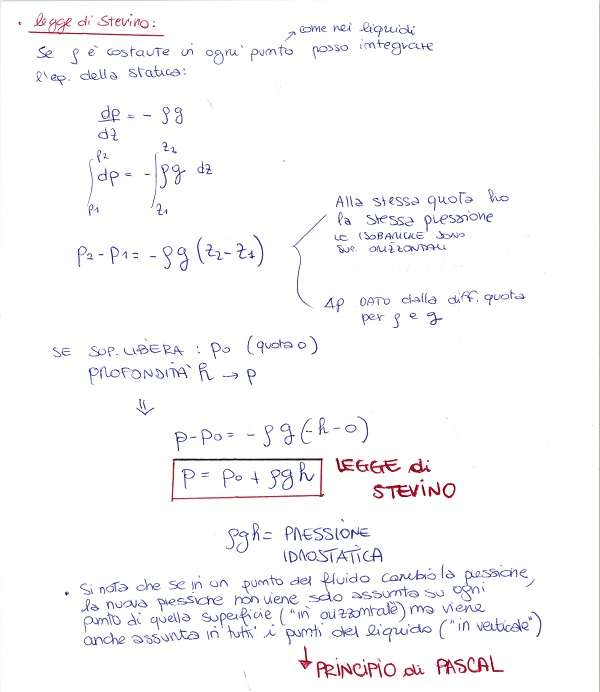 • legge di Stevino:
come nei liquidi
Se ρ è costante in ogni punto posso integrare
l'eq. della statica:
dp/dz = - ρg
∫p1^p2 dp = - ∫z1^z2 ρg dz
p2 - p1 = - ρg (z2 - z1)
Alla stessa quota ho
la stessa pressione
LE ISOBARICHE SONO
SUP. ORIZZONTALI
Δp DATO dalla diff. quota
per ρ e g
SE SUP. LIBERA : p0 (quota 0)
PROFONDITÀ h → p
⇓
p - p0 = - ρg (-h - 0)
p = p0 + ρgh LEGGE di
STEVINO
ρgh = PRESSIONE
IDROSTATICA
• Si nota che se in un punto del fluido cambio la pressione,
la nuova pressione non viene solo assunta su ogni
punto di quella superficie ("in orizzontale") ma viene
anche assunta in tutti i punti del liquido ("in verticale")
↓ PRINCIPIO di PASCAL